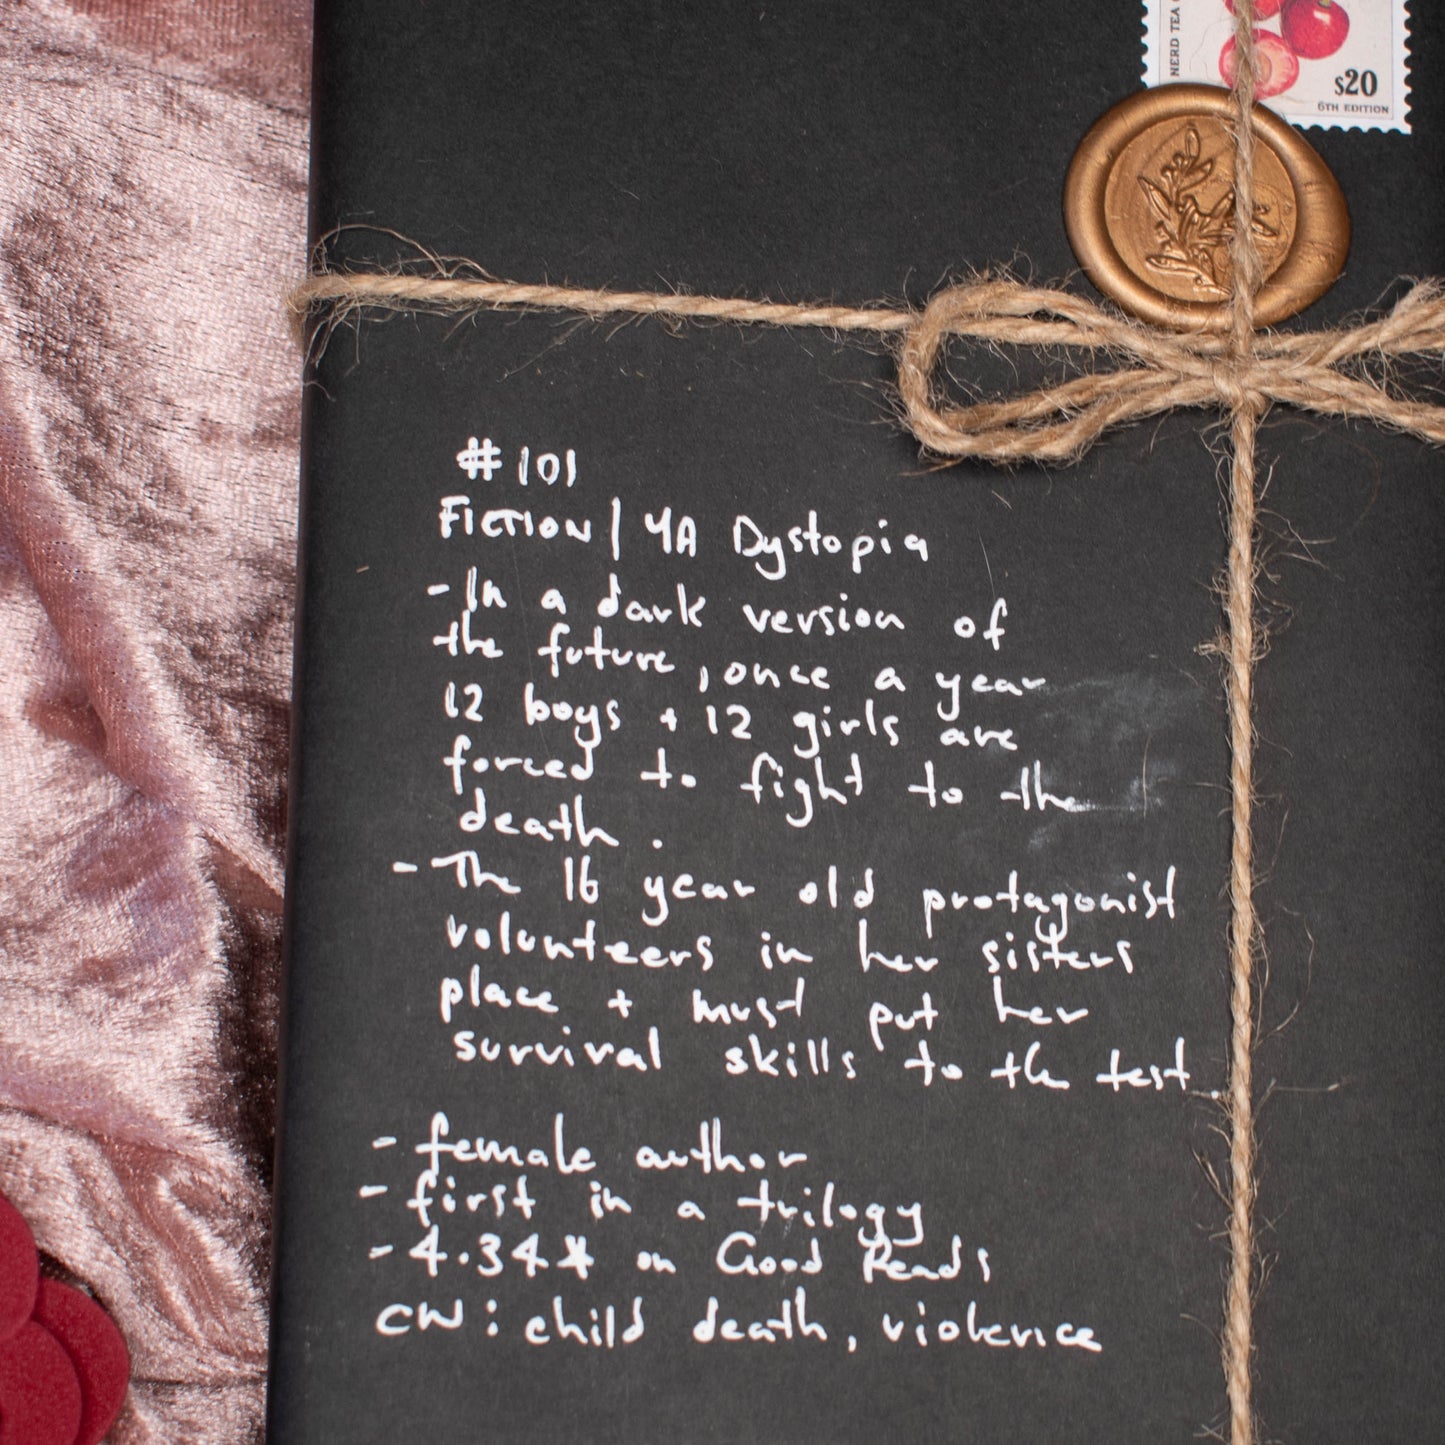 NERD TEA
$20
6TH EDITION
#101
FICTION | YA Dystopia
- In a dark version of
the future, once a year
12 boys + 12 girls are
forced to fight to the
death.
- The 16 year old protagonist
volunteers in her sisters
place + must put her
survival skills to the test.
- female author
- first in a trilogy
- 4.34* on Good Reads
CW: child death, violence